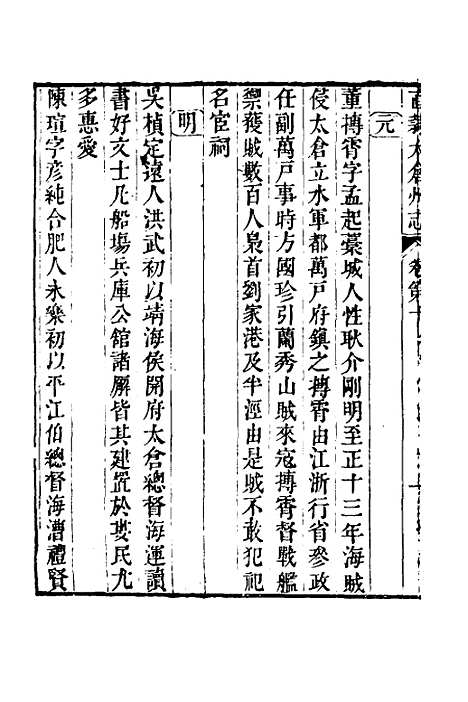 直隸太倉州志 卷第十
元
董搏霄字孟起藁城人性耿介剛明至正十三年海賊
侵太倉立水軍都萬戸府鎮之搏霄由江浙行省叅政
任副萬戸事時方國珍引蘭秀山賊來寇搏霄督戰艦
禦獲賊數百人梟首劉家港及半涇由是賊不敢犯祀
名宦祠
明
吳楨定遠人洪武初以靖海侯開府太倉總督海運讀
書好文士凡船場兵庫公館諸廨皆其建置於婁民尤
多惠愛
陳瑄字彥純合肥人永樂初以平江伯總督海漕禮賢